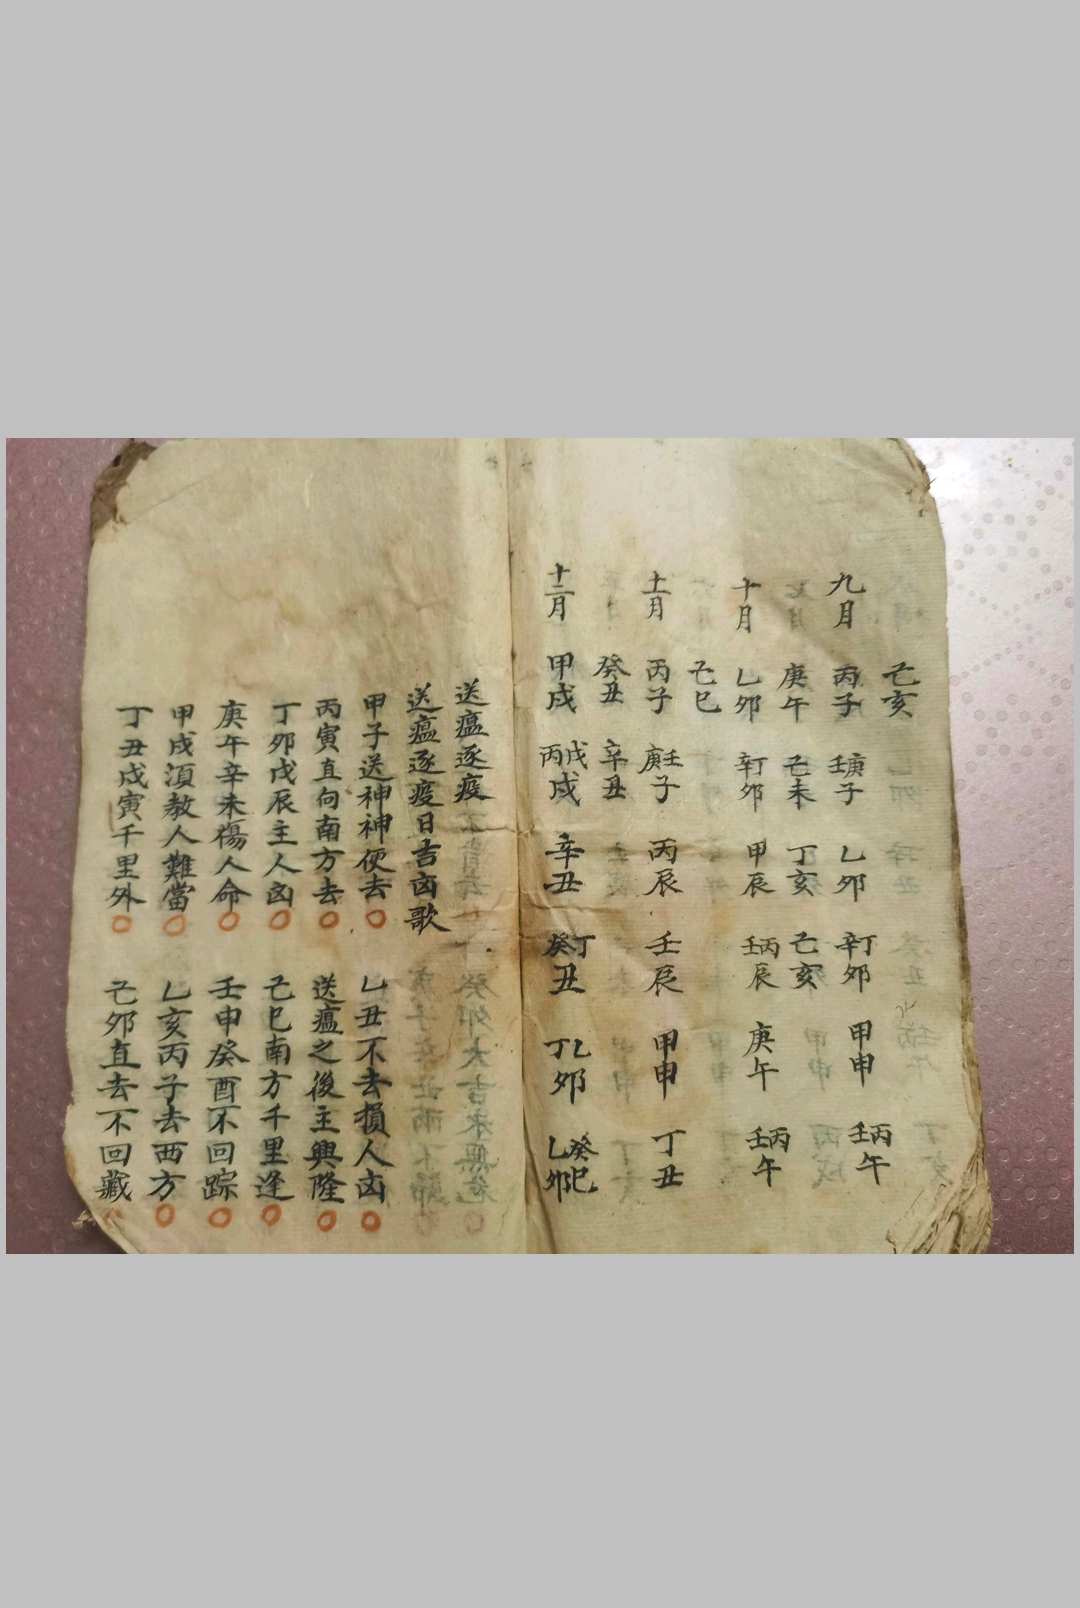 己亥
九月 丙子 壬庚子 乙卯 辛丁卯 甲申 壬丙午
庚午 己未 丁亥 己亥
十月 乙卯 辛丁卯 甲辰 壬丙辰 庚午 壬丙午
己巳
十一月 丙子 庚壬子 丙辰 壬辰 甲申 丁丑
癸丑 辛丑
十二月 甲戌 丙戊戌 辛丑 癸丁丑 丁乙卯 乙卯癸巳
送瘟逐疫
送瘟逐疫日吉凶歌
甲子送神神便去 乙丑不去損人凶
丙寅直向南方去 送瘟之後主興隆
丁卯戊辰主人凶 己巳南方千里逢
庚午辛未傷人命 壬申癸酉不回踪
甲戌須教人難當 乙亥丙子去西方
丁丑戊寅千里外 己卯直去不回藏